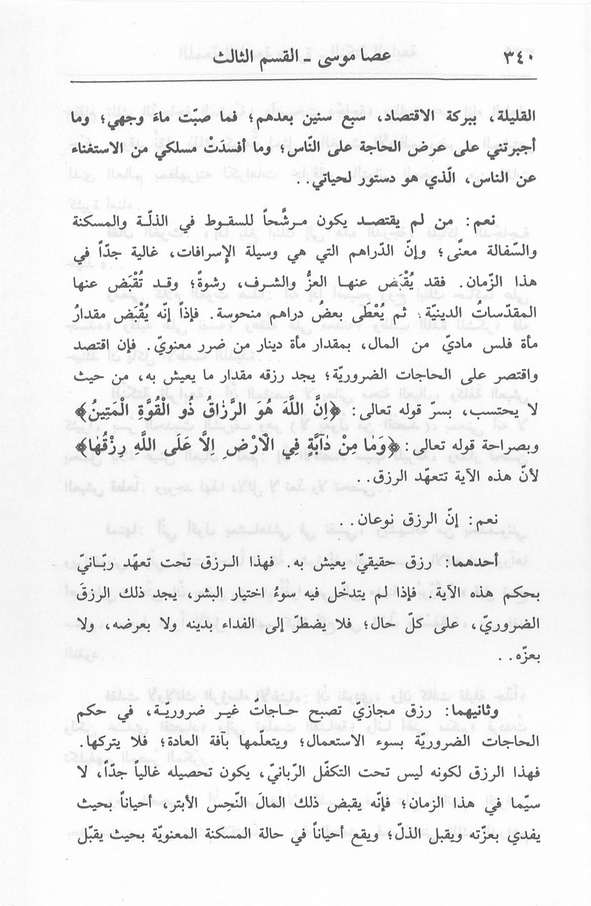 ٣٤٠ عصا موسى ـ القسم الثالث
القليلة، ببركة الاقتصاد، سبع سنين بعدهم؛ فما صبّت ماءَ وجهي؛ وما
أجبرتني على عرض الحاجة على النّاس؛ وما أفسدَتْ مسلكي من الاستغناء
عن الناس، الّذي هو دستور لحياتي..
نعم: من لم يقتصد يكون مرشَّحاً للسقوط في الذلّة والمسكنة
والسّفالة معنًى؛ وإنّ الدّراهم التي هي وسيلة الإسرافات، غالية جدّاً في
هذا الزّمان. فقد يُقْبَض عنها العزُّ والشرف، رشوةً؛ وقد تُقْبَض عنها
المقدّساتُ الدينيّة؛ ثم يُعْطَى بعضُ دراهم منحوسة. فإذاً إنّه يُقْبَض مقدارُ
مأة فلس ماديّ من المال، بمقدار مأة دينار من ضرر معنويّ. فإن اقتصد
واقتصر على الحاجات الضروريّة؛ يجد رزقه مقدار ما يعيش به، من حيث
لا يحتسب، بسرّ قوله تعالى: ﴿إِنَّ اللَّهَ هُوَ الرَّزَاقُ ذُو الْقُوَّةِ الْمَتِينُ﴾
وبصراحة قوله تعالى: ﴿وَمَا مِنْ دَابَّةٍ فِي الْاَرْضِ اِلَّا عَلَى اللَّهِ رِزْقُهَا﴾
لأنّ هذه الآية تتعهّد الرزق..
نعم: إنّ الرزق نوعان..
أحدهما: رزق حقيقيّ يعيش به. فهذا الرزق تحت تعهّد ربّانيّ
بحكم هذه الآية. فإذا لم يتدخّل فيه سوءُ اختيار البشر، يجد ذلك الرزقَ
الضروريّ، على كلّ حال؛ فلا يضطرّ إلى الفداء بدينه ولا بعرضه، ولا
بعزّه..
وثانيهما: رزق مجازيّ تصبح حاجاتٌ غير ضروريّة، في حكم
الحاجات الضروريّة بسوء الاستعمال؛ ويتعلّمها بآفة العادة؛ فلا يتركها.
فهذا الرزق لكونه ليس تحت التكفّل الرّبّانيّ، يكون تحصيله غالياً جدّاً، لا
سيّما في هذا الزمان؛ فإنّه يقبض ذلك المالَ النّجِس الأبتر، أحياناً بحيث
يفدي بعزّته ويقبل الذلّ؛ ويقع أحياناً في حالة المسكنة المعنويّة بحيث يقبّل